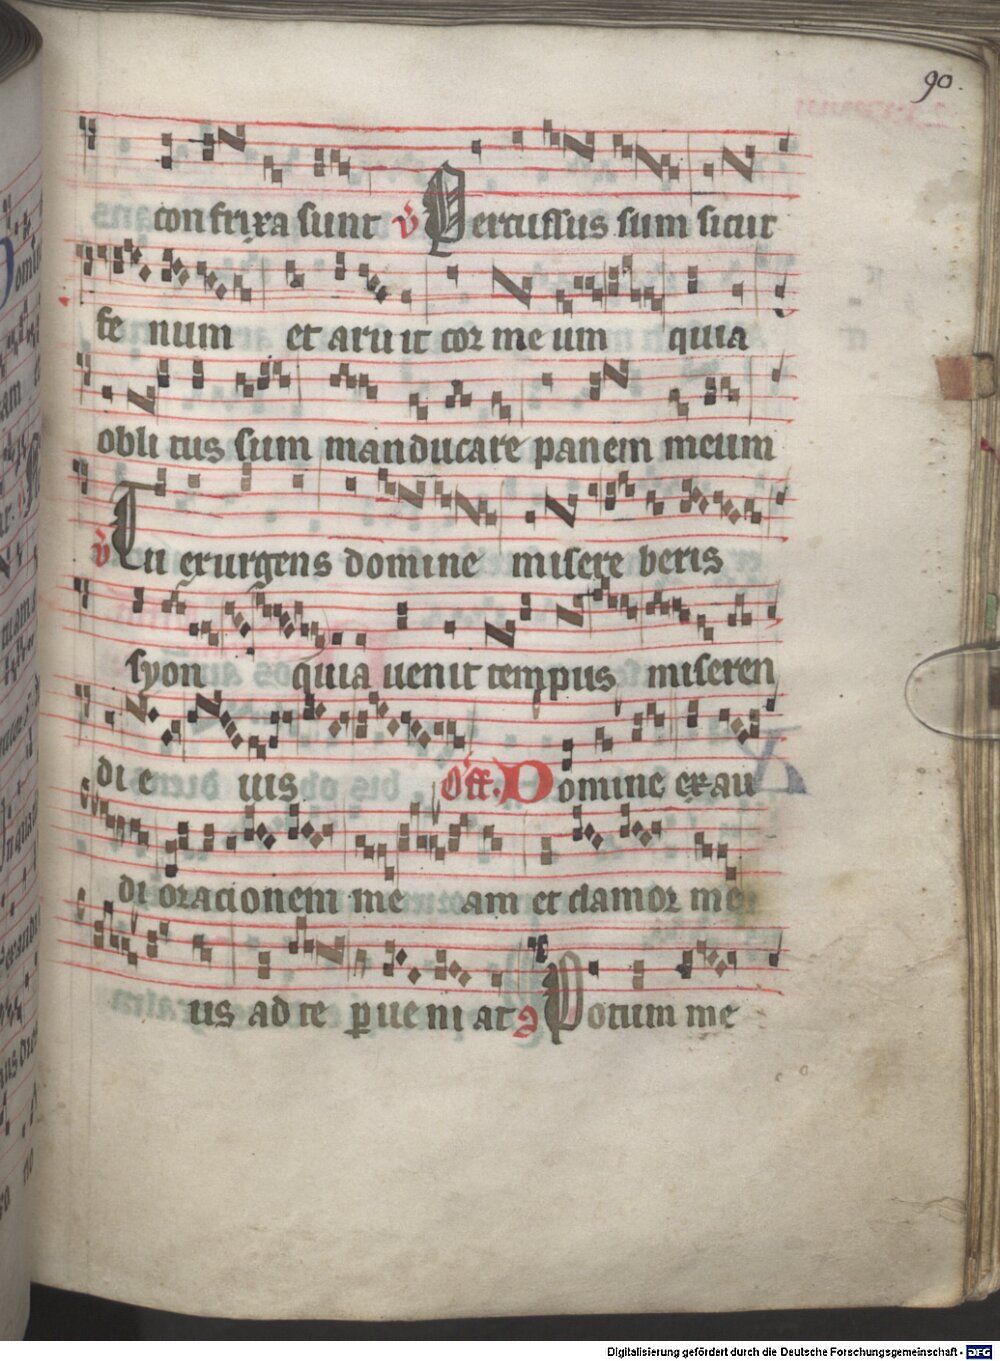 90.
con frixa sunt v Percussus sum sicut
fe num et aru it cor me um quia
obli tus sum manducare panem meum
v Tu exurgens domine misere beris
syon quia uenit tempus miseren
di e uis Off. Domine exau
di oracionem me am et clamor me
us ad te ꝑue ni at Potum me
Digitalisierung gefördert durch die Deutsche Forschungsgemeinschaft - DFG